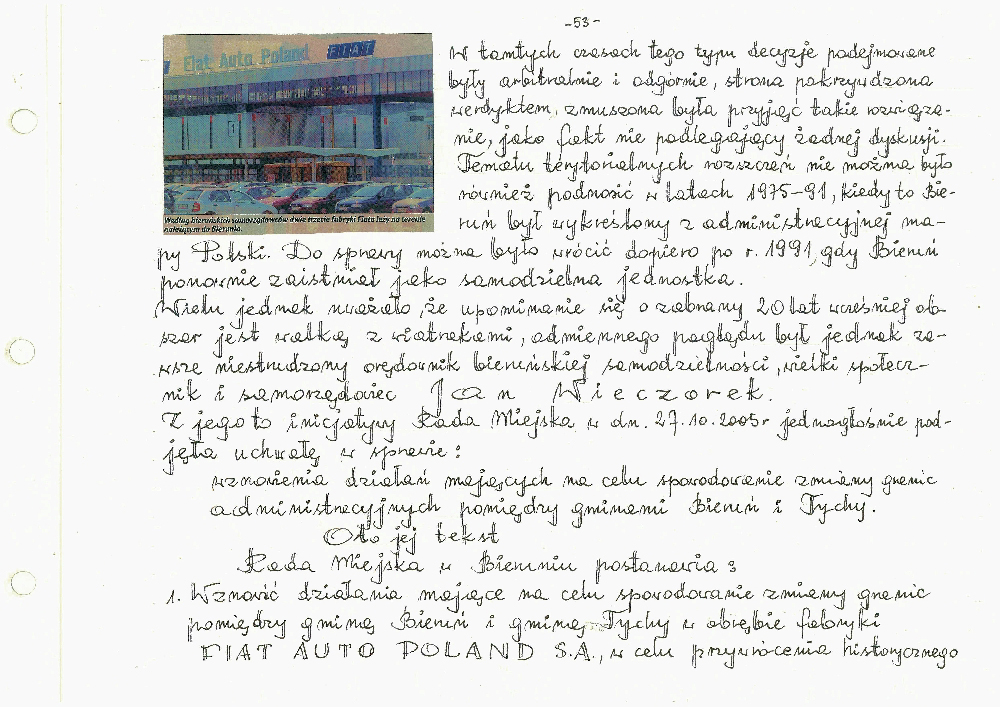 -53-
Fiat Auto Poland FIAT
Według bieruńskich samorządowców dwie trzecie fabryki Fiata leży na terenie
należącym do Bierunia.
W tamtych czasach tego typu decyzje podejmowane
były arbitralnie i odgórnie, strona pokrzywdzona
werdyktem, zmuszona była przyjąć takie rozwiąza-
nie, jako fakt nie podlegający żadnej dyskusji.
Tematu terytorialnych roszczeń nie można było
również podnosić w latach 1975-91, kiedy to Bie-
ruń był wykreślony z administracyjnej ma-
py Polski. Do sprawy można było wrócić dopiero po r. 1991, gdy Bieruń
ponownie zaistniał jako samodzielna jednostka.
Wielu jednak uważało, że upominanie się o zabrany 20 lat wcześniej ob-
szar jest walką z wiatrakami, odmiennego poglądu był jednak za-
wsze niestrudzony orędownik bieruńskiej samodzielności, wielki społecz-
nik i samorządowiec Jan Wieczorek.
Z jego to inicjatywy Rada Miejska w dn. 27.10.2005r jednogłośnie pod-
jęła uchwałę w sprawie:
wznowienia działań mających na celu spowodowanie zmiany granic
administracyjnych pomiędzy gminami Bieruń i Tychy.
Oto jej tekst
Rada Miejska w Bieruniu postanowia:
1. Wznowić działania mające na celu spowodowanie zmiany granic
pomiędzy gminą Bieruń i gminą Tychy w obrębie fabryki
FIAT AUTO POLAND S.A., w celu przywrócenia historycznego